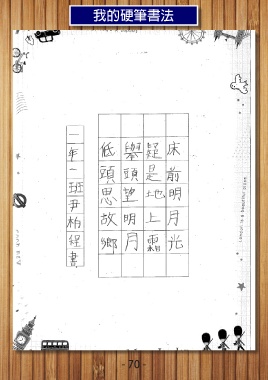 我的硬筆書法
床前明月光
疑是地上霜
舉頭望明月
低頭思故鄉
一年二班尹柏程書
London is a beautiful place
- 70 -